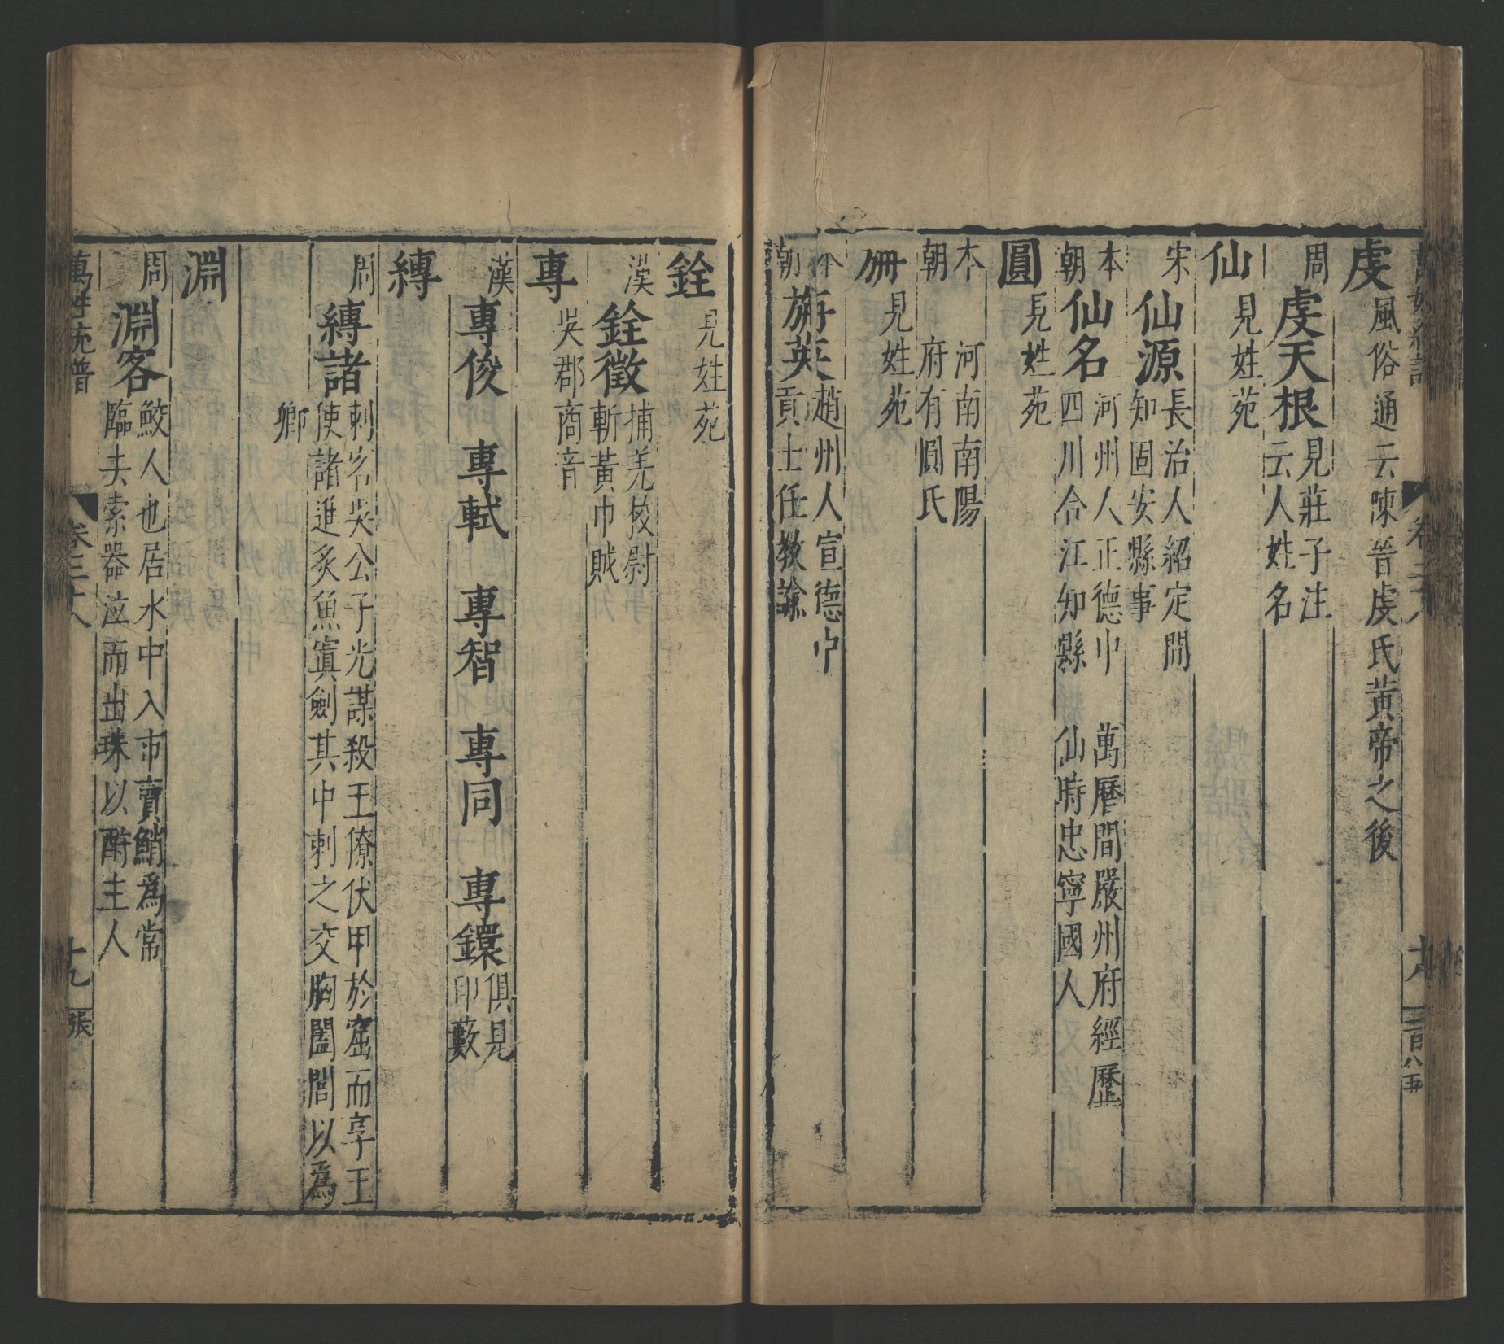 虔風俗通云陳晉虔氏黃帝之後
周虔天根見莊子注云人姓名
仙見姓苑
宋仙源長治人紹定間知固安縣事
本朝仙名河州人正德中四川合江知縣 萬曆間嚴州府經歷 仙時忠寧國人
圓見姓苑
本朝 河南南陽府有圓氏
㫋見姓苑
本朝旃英趙州人宣德中貢士任教諭
銓見姓苑
漢銓徵捕羌校尉斬黃巾賊
專吳郡商音
漢專俊 專軾 專智 專同 專鐶俱見印藪
縳
周縳諸刺客吳公子光謀殺王僚伏甲於窟而享王使諸進炙魚寘劍其中刺之交胸闔閭以為卿
淵
周淵客鮫人也居水中入市賣鮹為常臨去索器泣而出珠以酧主人
萬姓統譜 卷二十八 十九 張